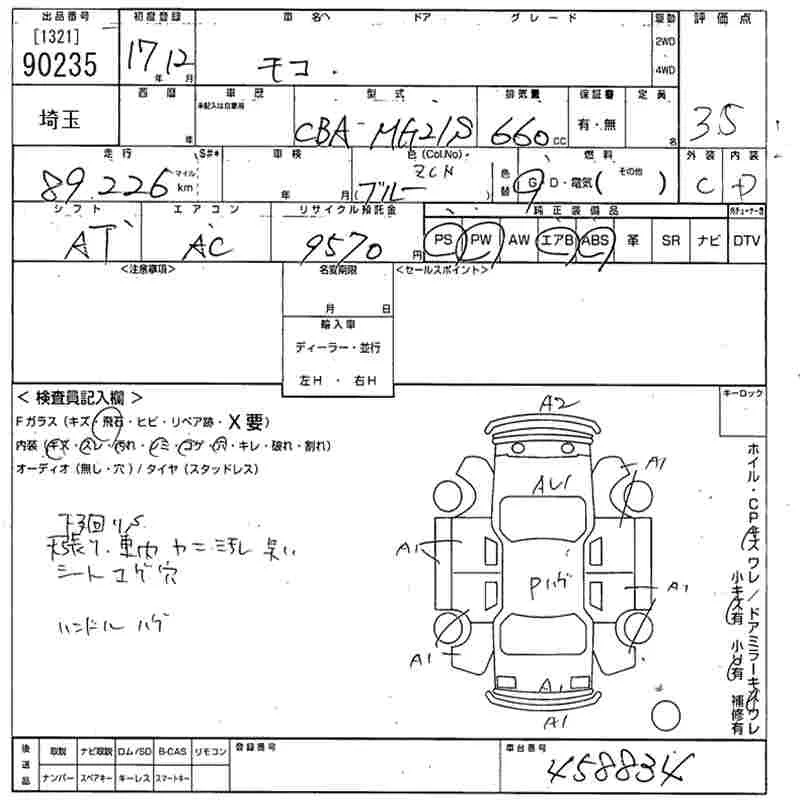 出品番号 初度登録 車名 ドア グレード 駆動 評価点
[1321]
90235
17年 12月
モコ
2WD
4WD
3.5
埼玉
西暦 車歴 型式 排気量 保証書 定員
未記入は自家用
年
CBA-MG21S
660cc
有・無
名
走行 S#* 車検 色(Col.No) 燃料 外装 内装
89,226 マイル km
年 月
ZCN
(ブルー)
色替
G・D・電気( その他 )
C D
シフト エアコン リサイクル預託金 純正装備品
AT AC 9570円
PS PW AW エアB ABS 革 SR ナビ DTV
<注意事項> 名変期限 <セールスポイント>
月 日
輸入車
ディーラー・並行
左H ・ 右H
キーロック
<検査員記入欄>
Fガラス(キズ・飛石・ヒビ・リペア跡・X要)
内装(キズ・スレ・汚れ・シミ・コゲ・穴・キレ・破れ・割れ)
オーディオ(無し・穴)/タイヤ(スタッドレス)
下回りS
天張り、車内ヤニ汚れ臭い
シートコゲ穴
ハンドルハゲ
A2
AU1
A1
A1
Pハゲ
A1
A1
A1
A1
ホイル・CPキズ ワレ/ドアミラーキズワレ
小キズ有 小凹有 補修有
後送品 取説 ナビ取説 ロム/SD B-CAS リモコン 登録番号 車台番号
ナンバー スペアキー キーレス スマートキー
458834